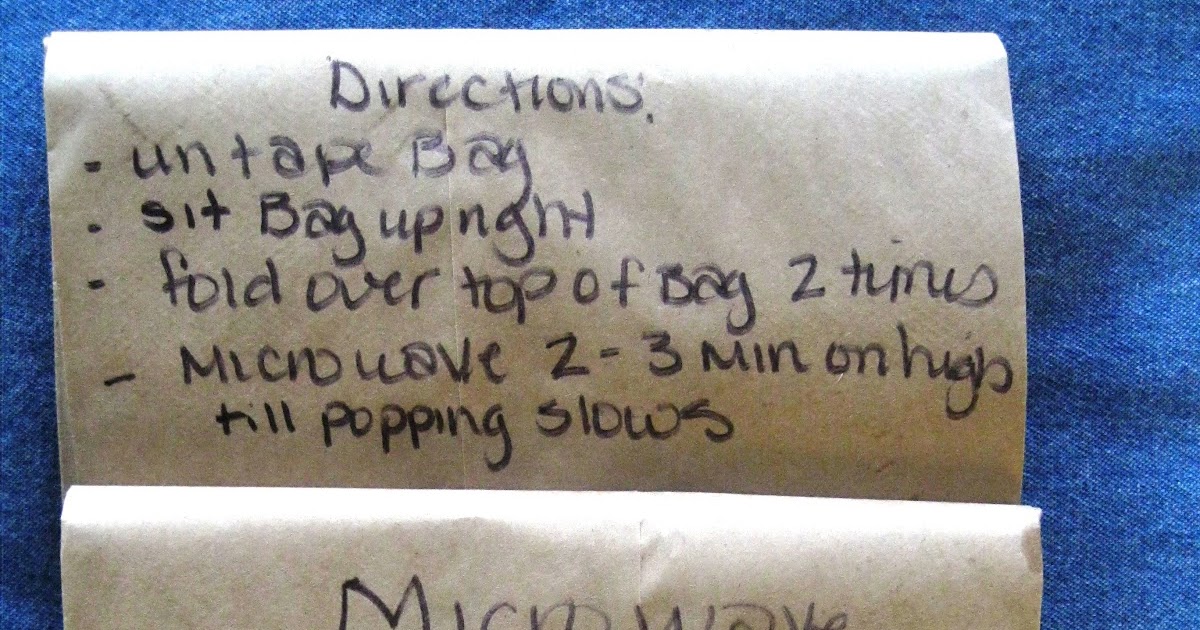 Directions:
- un tape Bag
- sit Bag upright
- fold over top of Bag 2 times
- Microwave 2-3 Min on high
till popping slows
Microwave